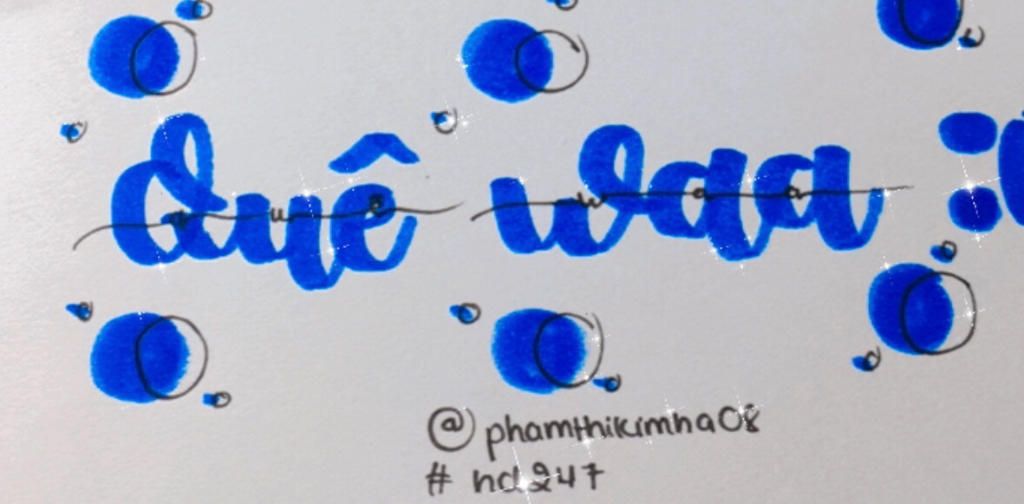 Quê waa :
@phamthikimha08
# hd247